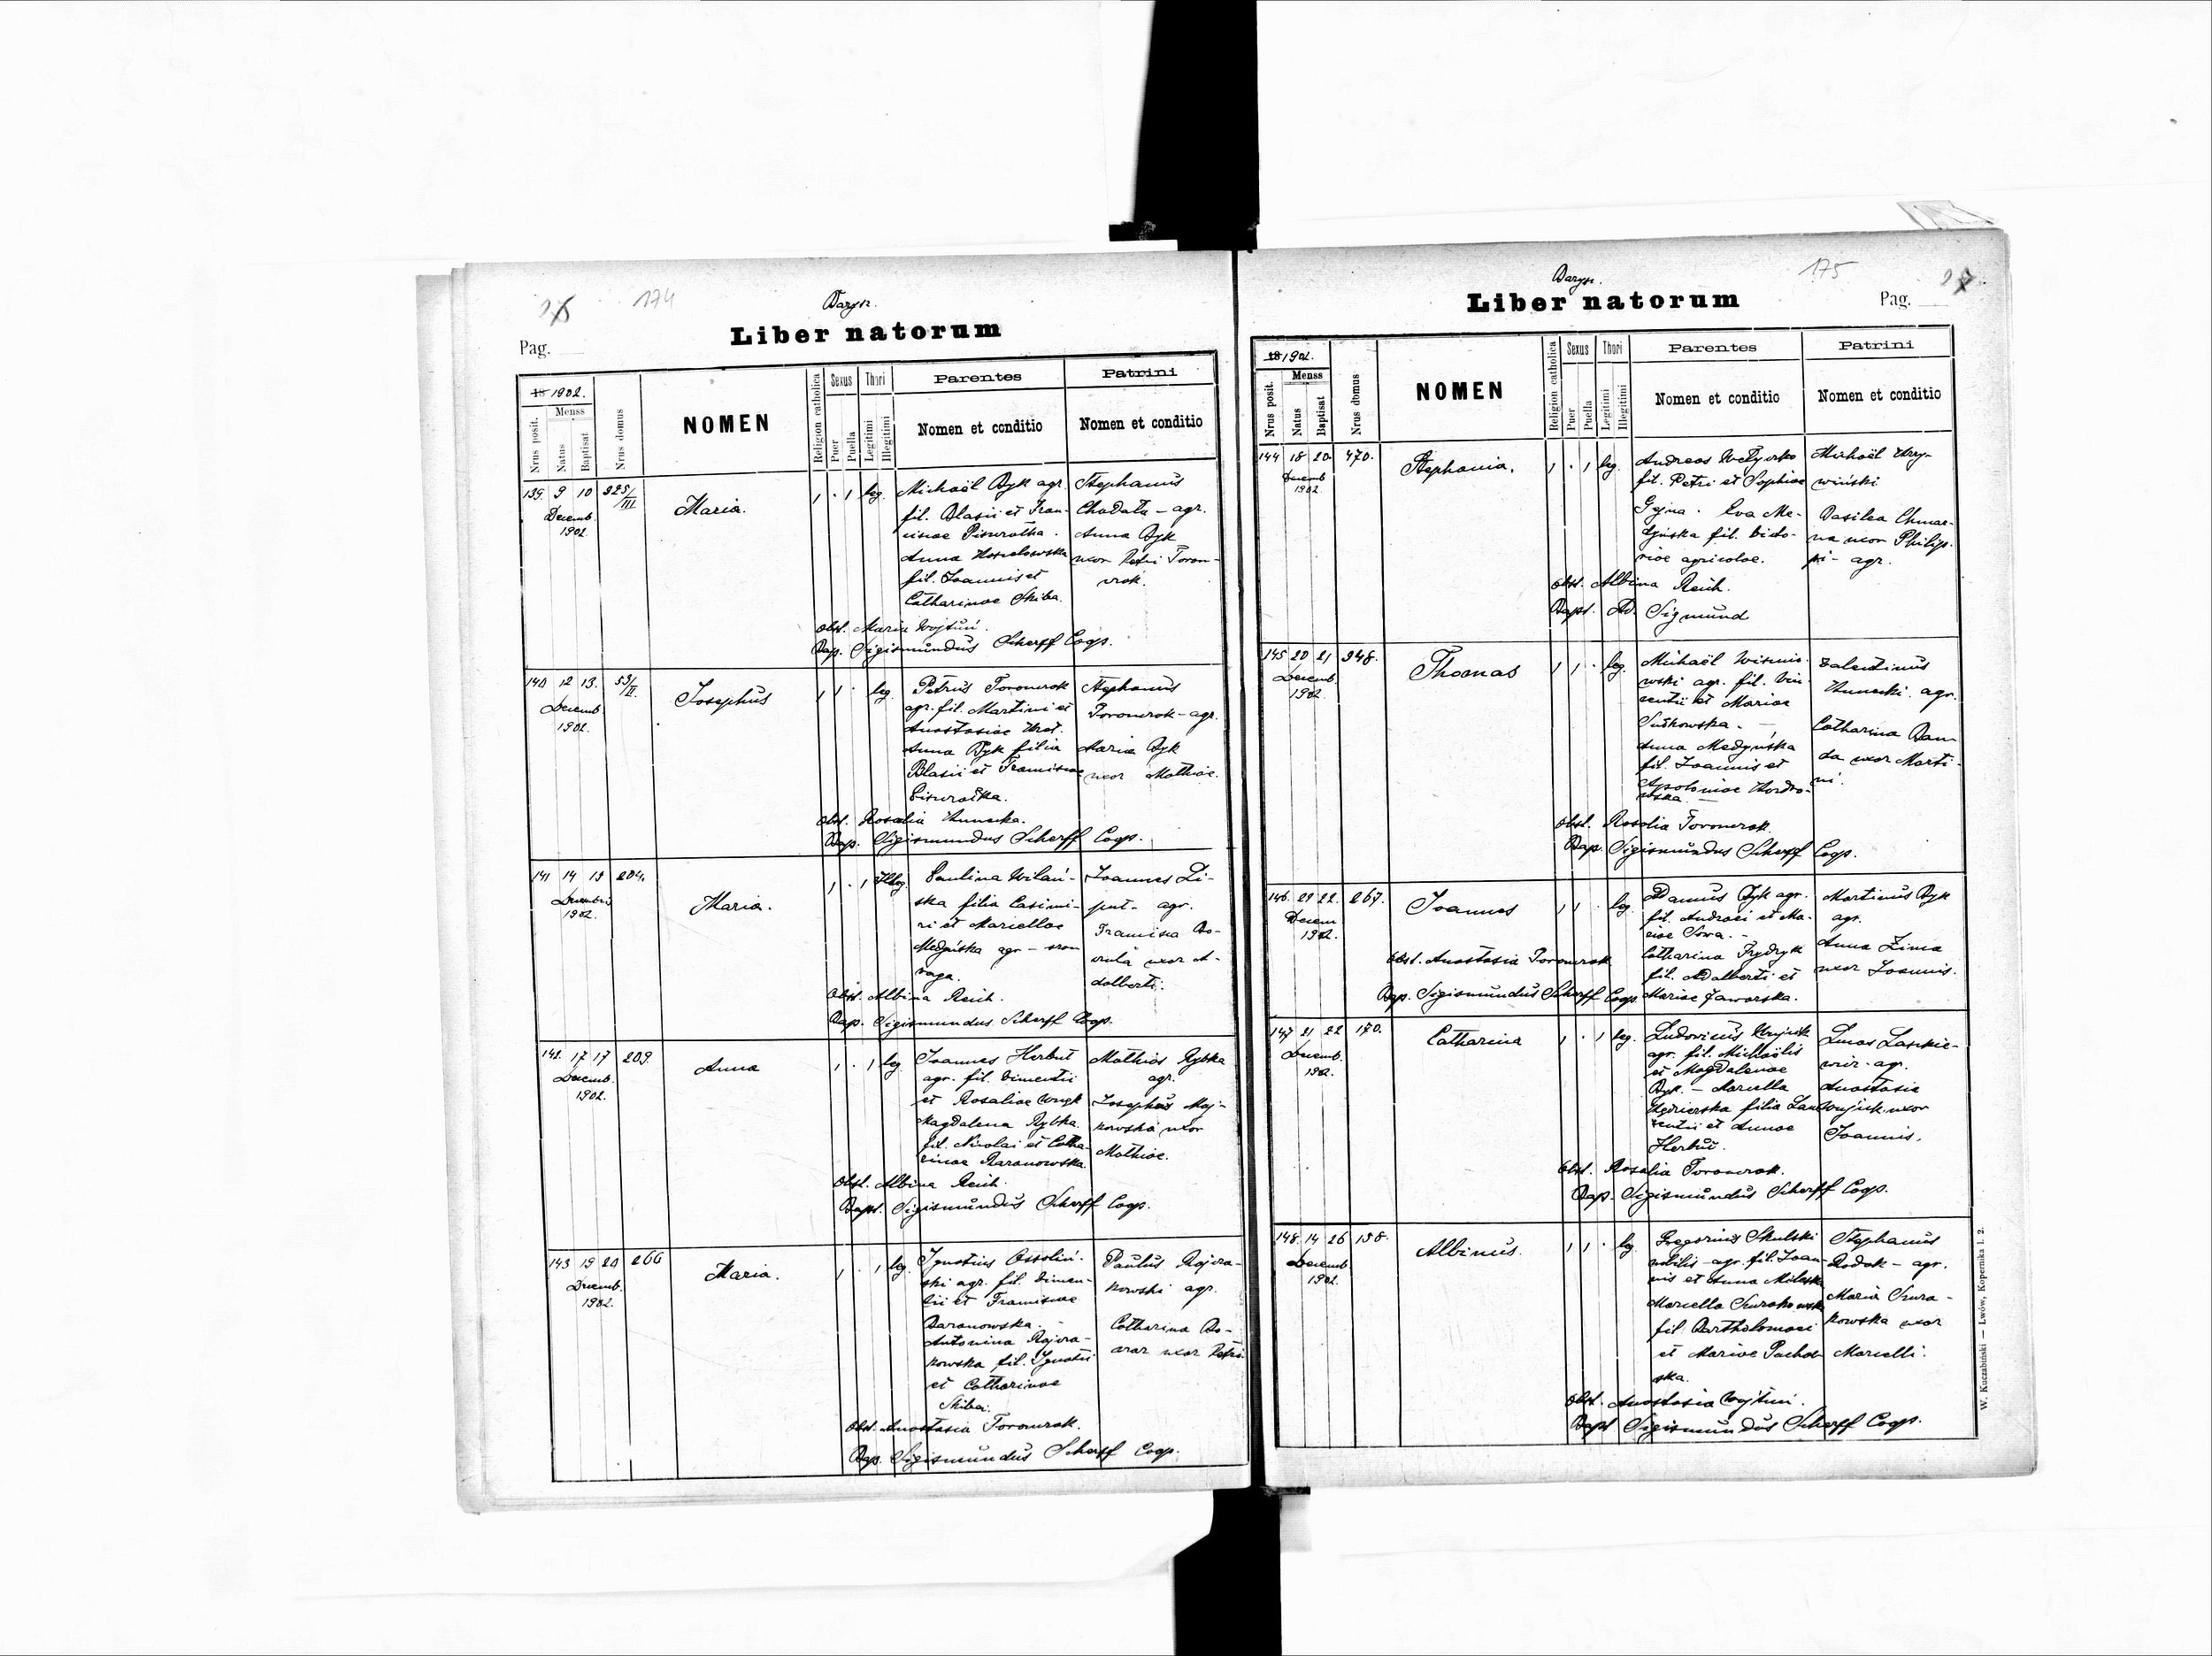 174
Barysz.
Liber natorum
Pag.
18 1902.
Nrus posit.
Menss
Natus
Baptisat
Nrus domus
NOMEN
Religion catholica
Sexus
Puer
Puella
Thori
Legitimi
Illegitimi
Parentes
Nomen et conditio
Patrini
Nomen et conditio
139. 9 10 325/III
Decemb.
1902.
Maria.
1 . 1 leg.
Michaël Byk agr.
fil. Blasii et Fran-
ciscae
Anna
fil. Joannis et
Catharinae Skiba.
Stephanus
Chodata - agr.
Anna Byk
uxor Petri Toron-
czok.
Obst. Maria Wojtuń.
Bap. Sigismundus Scherff Coop.
140 12 13. 53/II.
Decemb
1902.
Josephus
1 1 . leg.
Petrus Toronczok
agr. fil. Martini et
Anastasiae
Anna Byk filia
Blasii et Franciscae
Stephanus
Toronczok - agr.
Maria Byk
uxor Mathiae.
Obst. Rosalia
Bap. Sigismundus Scherff Coop.
141 14 15 204.
Decembris
1902.
Maria.
1 . 1 Illeg.
Paulina Wilań-
ska filia Casimi-
ri et Mariellae
Medyńska agr -
Joannes Li-
put - agr.
Francisca Bo-
uxor A-
dalberti.
Obst. Albina Reich.
Bap. Sigismundus Scherff Coop.
142. 17 17 209.
Decemb.
1902.
Anna
1 . 1 leg.
Joannes Herbut
agr. fil. Vincentii
et Rosaliae
Magdalena Rybka
fil. Nicolai et Catha-
rinae Baranowska.
Mathias Rybka
agr.
Josepha Maj-
kowska uxor
Mathiae.
Obst. Albina Reich.
Bapt. Sigismundus Scherff Coop.
143 19 20 266
Decemb.
1902.
Maria.
1 . 1 leg.
Ignatius Ossoliń-
ski agr. fil. Vincen-
tii et Franciscae
Baranowska. -
Antonina Rajcza-
kowska fil. Ignatii
et Catharinae
Skiba.
Paulus Rajcza-
kowski agr.
Catharina Bo-
uxor Petri
Obst. Anastasia Toronczok.
Bap. Sigismundus Scherff Coop.
175
Barysz.
Liber natorum
Pag.
27
18 1902.
Nrus posit.
Menss
Natus
Baptisat
Nrus domus
NOMEN
Religion catholica
Sexus
Puer
Puella
Thori
Legitimi
Illegitimi
Parentes
Nomen et conditio
Patrini
Nomen et conditio
144 18 20 470.
Decemb
1902.
Stephania.
1 . 1 leg.
Andreas
fil. Petri et Sophiae
Gojna. Eva Me-
dyńska fil. Victo-
riae agricolae.
Michaël
wiński
Basilea Chmar-
na uxor Philip-
pi - agr.
Obst. Albina Reich.
Bapt. Ad. Sigmund
145 20 21 348.
Decemb
1902.
Thomas
1 1 . leg.
Michaël Wiśnio-
wski agr. fil. Vin-
centii et Mariae
Sutkowska. -
Anna Medyńska
fil. Joannis et
Apoloniae
Valentinus
agr.
Catharina Ban-
da uxor Marti-
ni.
Obst. Rosalia Toronczok.
Bap. Sigismundus Scherff Coop.
146. 22 22. 267.
Decem
1902.
Joannes
1 1 . leg.
Adamus Byk agr.
fil. Andreei et Ma-
riae Sowa. -
Catharina Frydryk
fil. Adalberti et
Mariae Jaworska.
Martinus Byk
agr.
Anna Zima
uxor Joannis.
Obst. Anastasia Toronczok
Bap. Sigismundus Scherff Coop.
147 21 22 170.
Decemb.
1902.
Catharina
1 . 1 leg.
Ludovicus
agr. fil. Michaëlis
et Magdalenae
Byk. - Mariella
filia Lau-
rentii et Annae
Herbut.
Lucas Laskie-
wicz - agr.
Anastasia
uxor
Joannis.
Obst. Rosalia Toronczok.
Bap. Sigismundus Scherff Coop.
148. 14 26 158.
Decemb
1902.
Albinus.
1 1 . leg.
Gregorius Skulski
nobilis - agr. fil. Joan-
nis et Anna
Mariella Szurakowska
fil. Bartholomaei
et Mariae Pachol-
ska.
Stephanus
Rodak - agr.
Maria Szura-
kowska uxor
Marcelli.
Obst. Anastasia Wojtuń.
Bapt Sigismundus Scherff Coop.
W. Kuczabiński — Lwów, Kopernika l. 2.